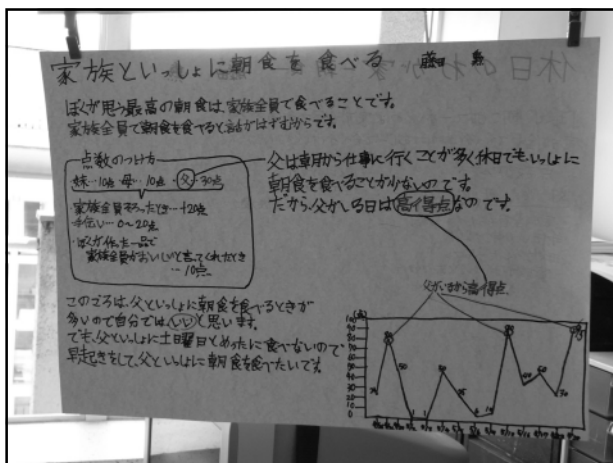 家族といっしょに朝食を食べる 藤田
ぼくが思う最高の朝食は、家族全員で食べることです。
家族全員で朝食を食べると話がはずむからです。
点数のつけ方
妹…10点 母…10点 父…30点
・家族全員そろったとき…+20点
・手伝い…0〜20点
・ぼくが作った一品で
家族全員がおいしいと言ってくれたとき
…10点
父は朝から仕事に行くことが多く休日でも、いっしょに
朝食を食べることが少ないのです。
だから、父がいる日は高得点なのです。
このごろは、父といっしょに朝食を食べるときが
多いので自分ではいいと思います。
でも、父といっしょに土曜日とめったに食べないので
早起きをして、父といっしょに朝食を食べたいです。
父がいるから高得点
100
90
80
70
60
50
40
30
20
10
0